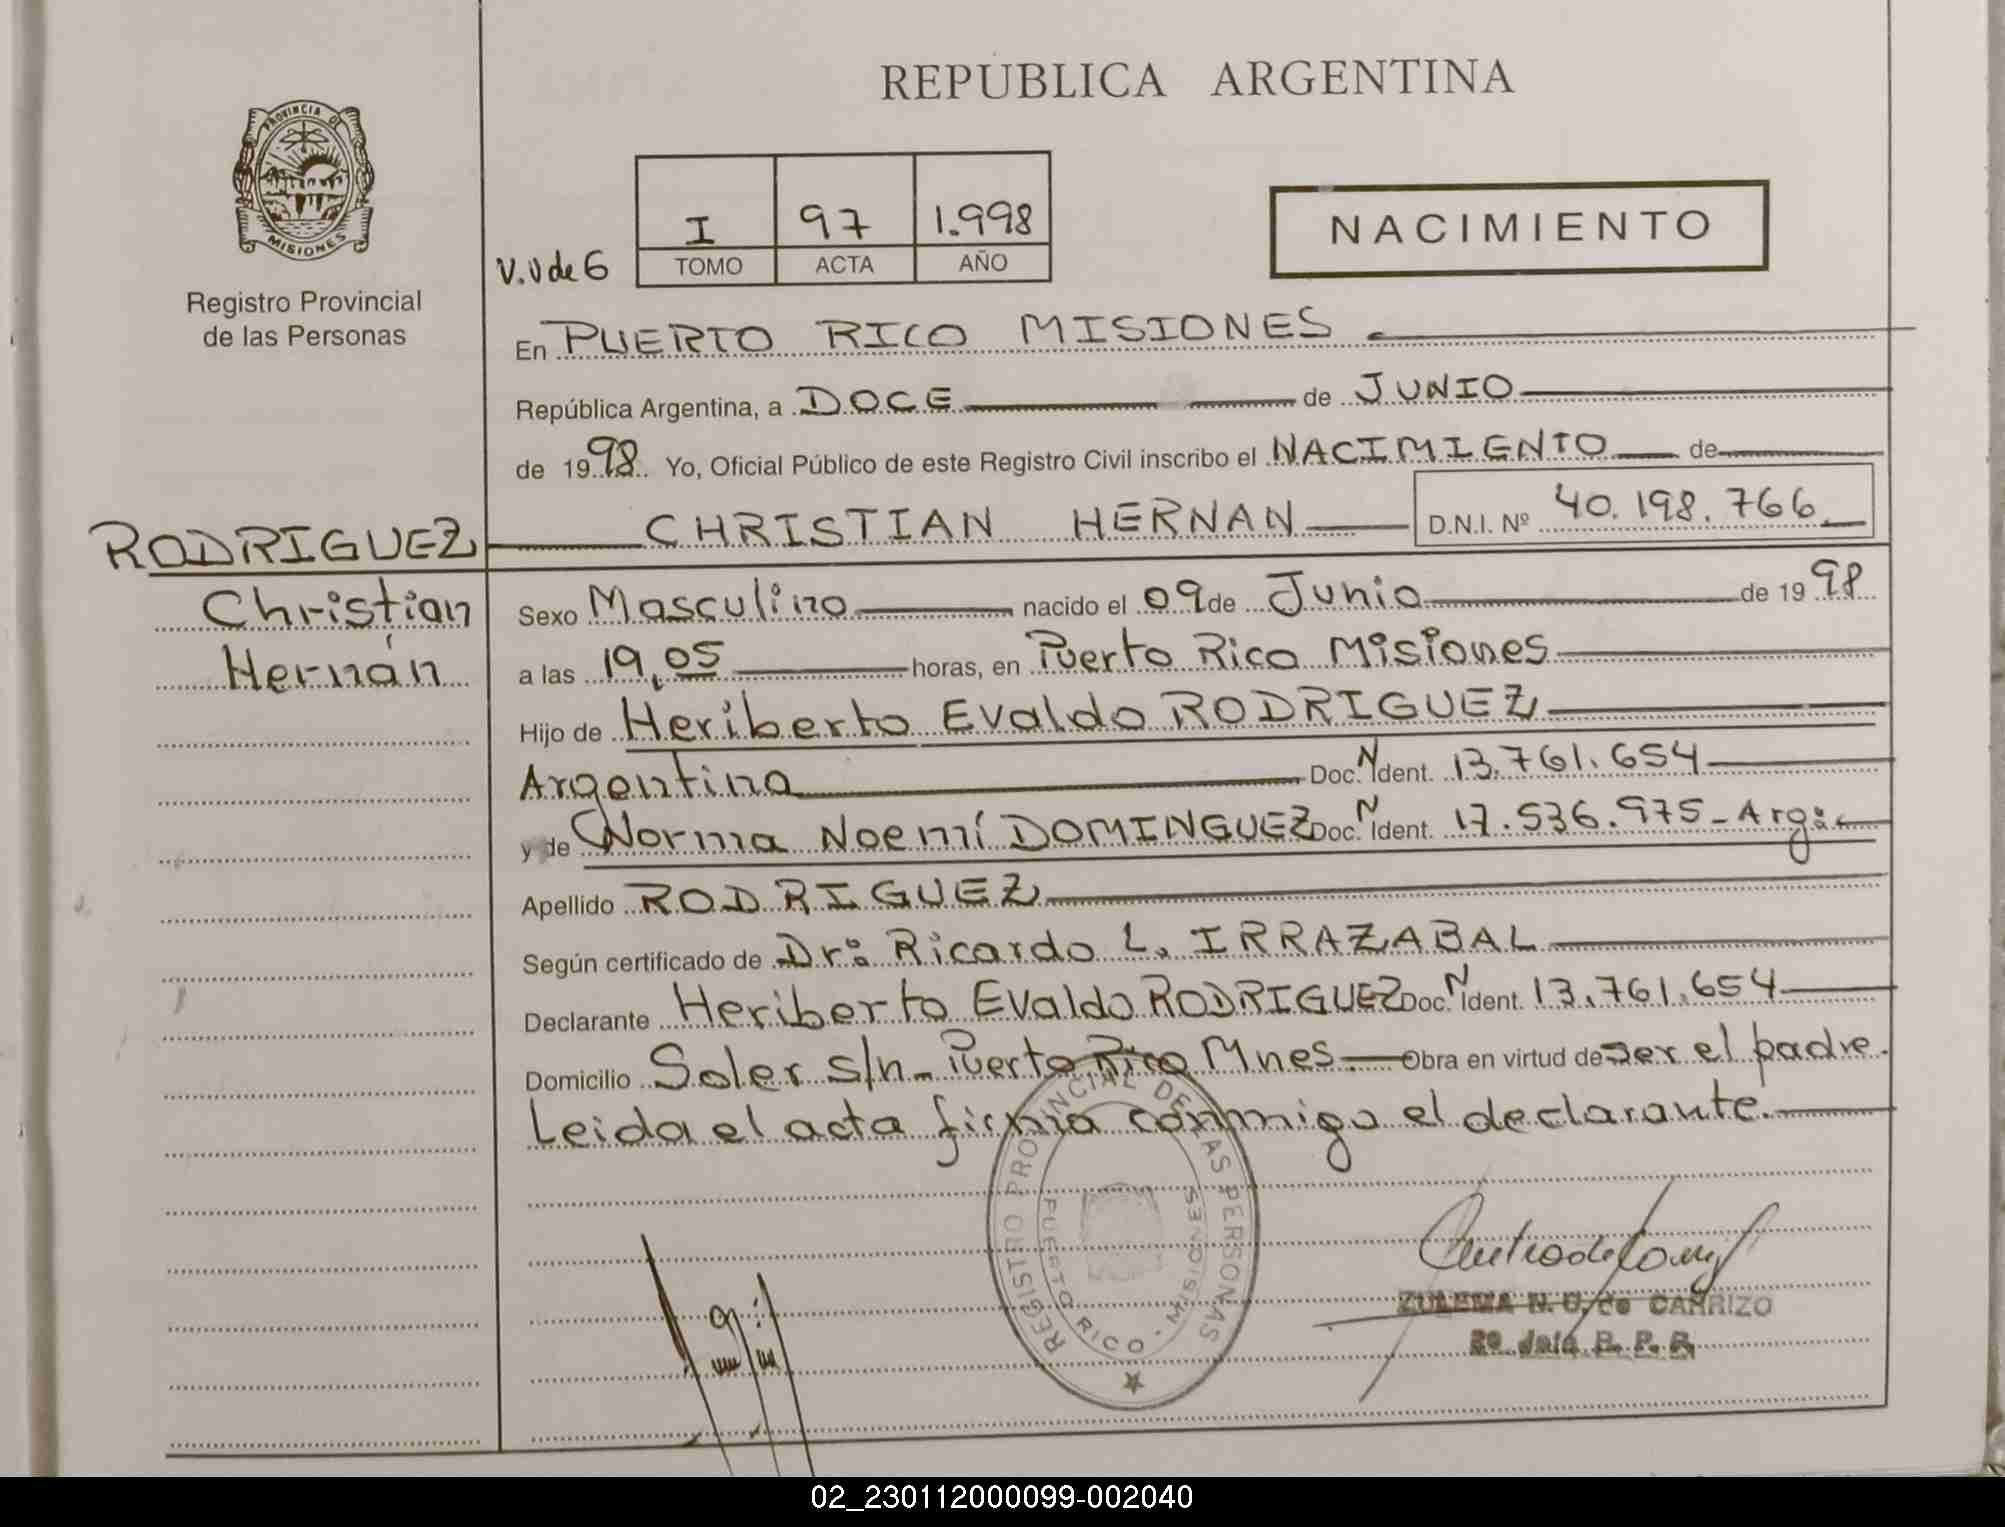 REPUBLICA ARGENTINA
PROVINCIA DE
MISIONES
Registro Provincial
de las Personas
V.V de 6
I 97 1.998
TOMO ACTA AÑO
NACIMIENTO
En PUERTO RICO MISIONES
República Argentina, a DOCE de JUNIO
de 1998 Yo, Oficial Público de este Registro Civil inscribo el NACIMIENTO de
RODRIGUEZ CHRISTIAN HERNAN D.N.I. Nº 40.198.766
Christian
Hernán
Sexo Masculino nacido el 09 de Junio de 1998
a las 19,05 horas, en Puerto Rico Misiones
Hijo de Heriberto Evaldo RODRIGUEZ
Argentina Doc. N Ident. 13.761.654
y de Norma Noemí DOMINGUEZ Doc. N Ident. 17.536.975 - Arg:
Apellido RODRIGUEZ
Según certificado de Dr: Ricardo L. IRRAZABAL
Declarante Heriberto Evaldo RODRIGUEZ Doc. N Ident. 13.761.654
Domicilio Soler s/n - Puerto Rico Mnes. Obra en virtud de ser el padre.
Leida el acta firma conmigo el declarante.
REGISTRO PROVINCIAL DE LAS PERSONAS
PUERTO RICO - MISIONES
ZULEMA N. U. de CARRIZO
R. P. P.
02_230112000099-002040